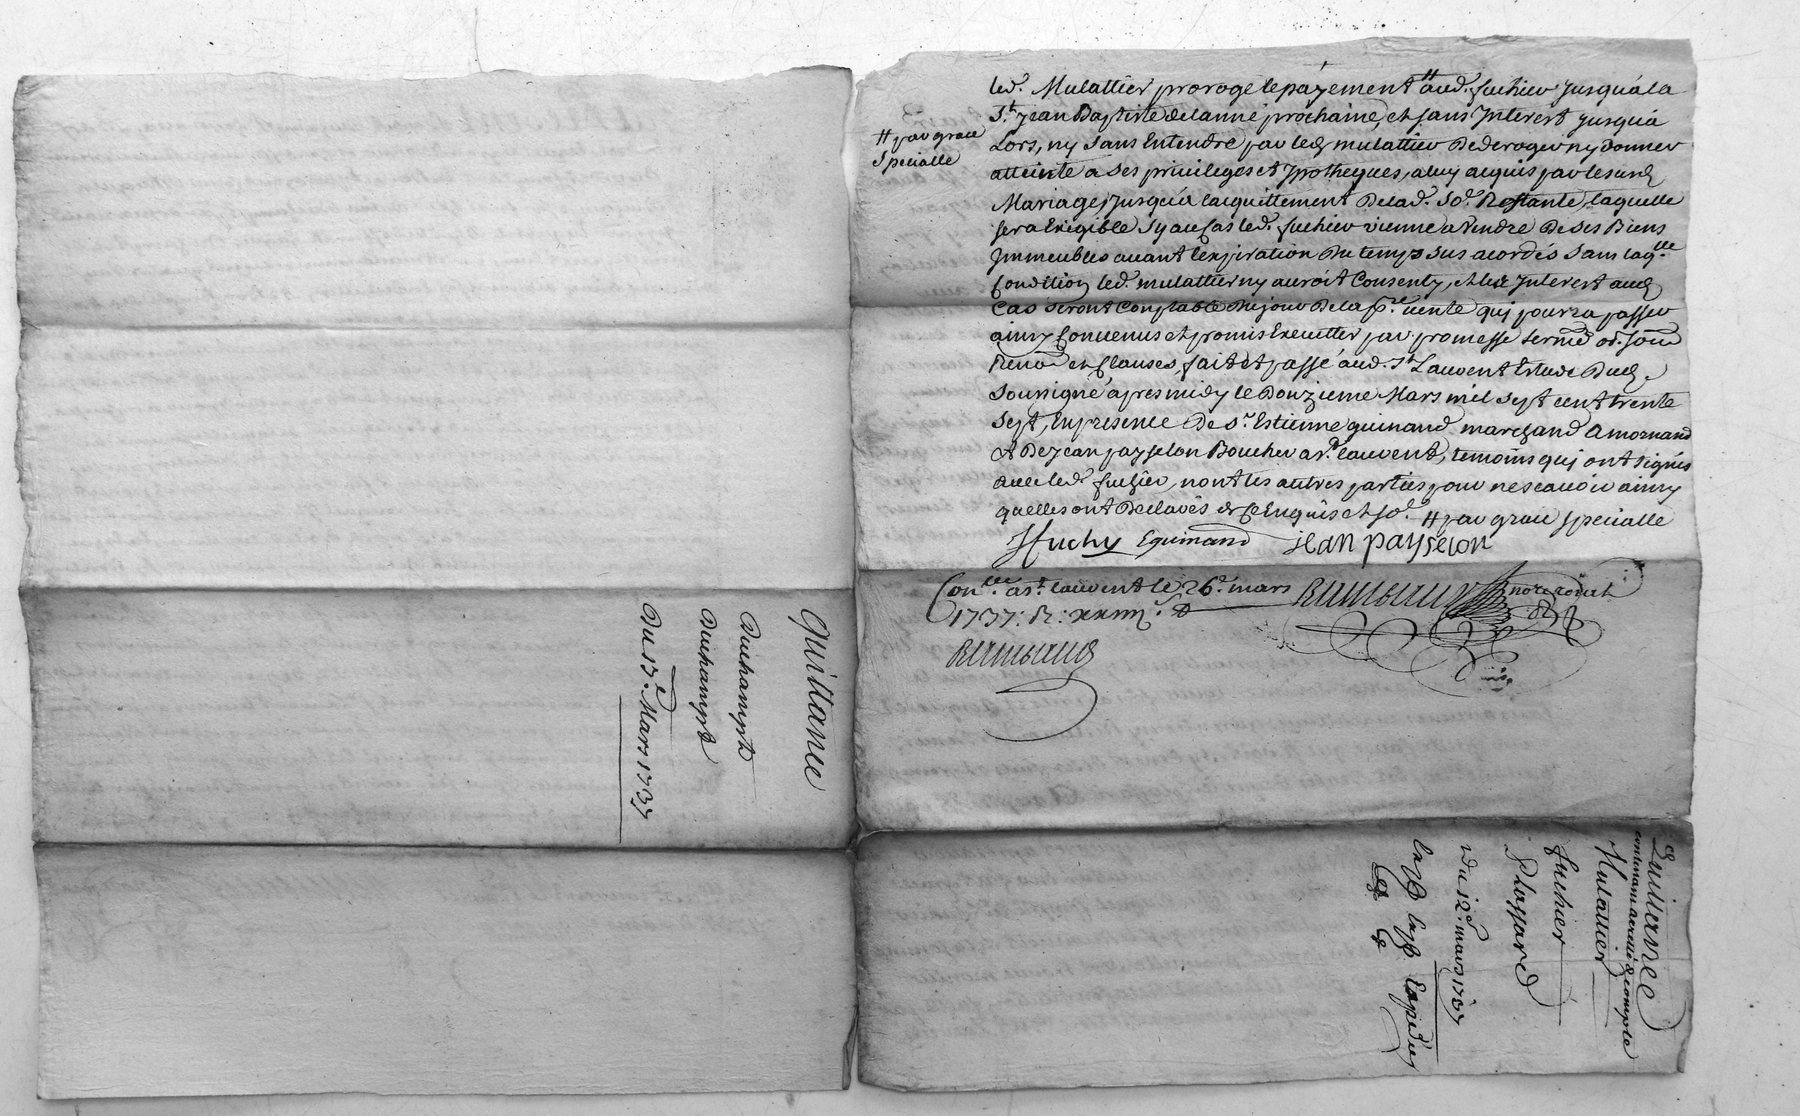 led. Mulattier proroge le payement # aud. fuchier jusqua la
St. jean Baptiste de lanné prochaine, et sans Interest jusqua
# par grace
Specialle
Lors, ny sans Entendre par led. mulattier de deroger ny donner
atteinte a ses privileges et Ypotheques, a luy acquis par lesusd.
Mariage, jusqu'a lacquittement de lad. So.e Restante, laquelle
sera Exigible Sy au Cas led. fuchier vienne a Vendre de ses Biens
Immeubles avant lexpiration du temps sus acordés sans laq.lle
Condition led. mulattier ny auroit Consenty, et les Interest aud.
Cas seront Comptable du jour de la p.re vente quj pourra passer
ainsy Convenus et promis Executter par promesse serme or. soum
Renon et Clauses, fait et passé aud. St Laurent Estude dud.
Soussigné apres midy le Douzieme Mars mil sept cent trente
Sept, En presence de Sr. Estienne guinand marchand a mornand
et de jean paysselon Boucher a st. laurent, temoins quj ont signés
avec led. fuchier, non les autres parties pour ne scavoir ainsy
quelles ont declarés de ce Enquis et so.e # par grace specialle
fuchy Eguinand jean paysselon
Con.lle a st. laurent le 26.e mars
1737: R: xxiiij s.
notre royal
Quittance
Duchampt
Duchampt
Du 13.e Mars 1737
Quittance
contenant arretté de compte
Mulattier
fuchier
Plassard
du 12.e mars 1737
Expediés